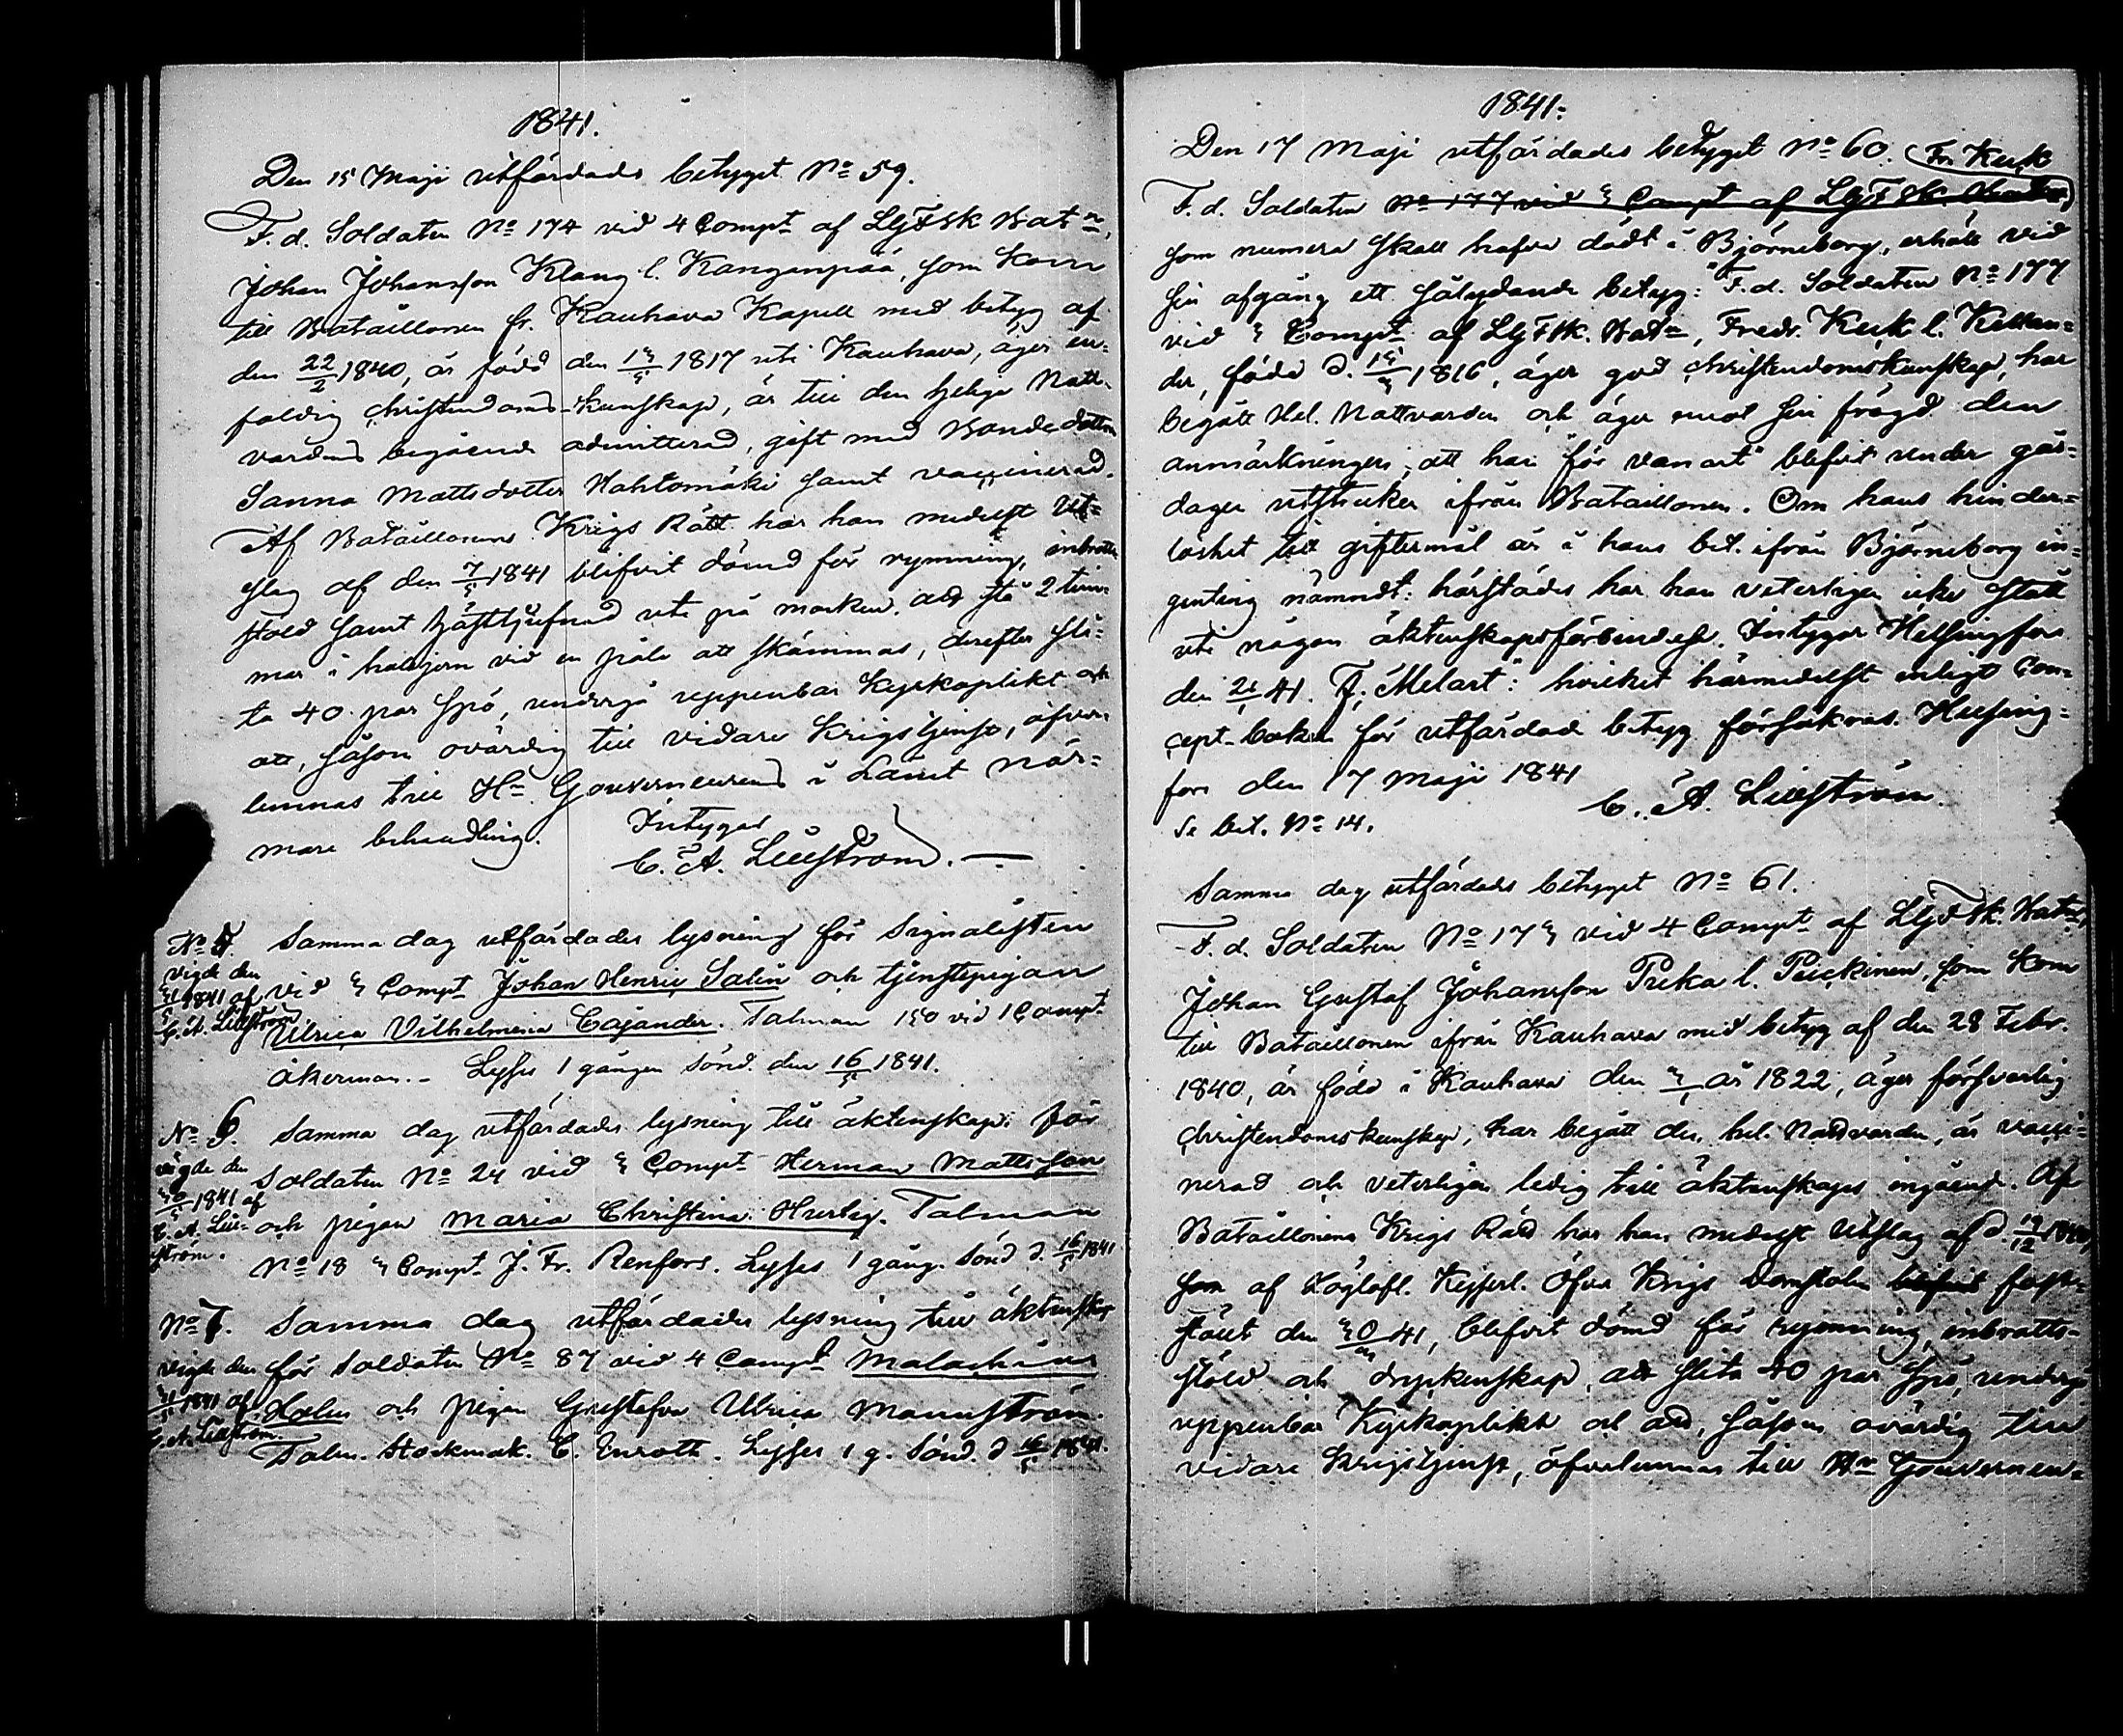 1841.
Den 15 Maji utfärdads betyget No 59.
F. d. Soldaten No 174 vid 4 Compt af LgFSk Batn,
Johan Johansson Klang l. Kanganpää, som kom
till Bataillonen fr. Kauhava Kapell med betyg af
den 22/2 1840, är född den 15/5 1817 uti Kauhava, äger en-
faldig christendoms-kunskap, är till den helige Natt-
vardens begående admitterad, gift med Bondedottren
Sanna Mattsdotter Hahtomäki samt vaccinerad.
Af Bataillonens Krigs Rätt har han medelst Ut-
slag af den 7/5 1841 blifvit dömd för rymning, inbrotts
stöld samt hästtjufnad ute på marken att stå 2 tim-
mar i halsjern vid en påle att skämmas, derefter sli-
ta 40 par spö, undergå uppenbar Kyrkoplikt och
att, såsom ovärdig till vidare Krigstjenst, öfver-
lemnas till Hn Gouverneuren i Länet när-
mare behandling.
Intygar
C. A. Lillström.
No 5. Samma dag utfärdades lysning för Signalisten
vigde den
51/5 1841 af vid 5 Compt Johan Henric Salin och tjenstepigan
C. A. Lillström Ulrica Vilhelmina Cajander. Talman 150 vid 1 Compt
Åkerman. – Lyses 1 gången Sönd. den 16/5 1841.
No 6. Samma dag utfärdades lysning till äktenskap för
vigde den Soldaten No 24 vid 5 Compt Herman Mattsson
50/5 1841 af
C. A. Lill- och pigan Maria Christina Hurtig. Talman
ström. No 18 5 Compt J. Fr. Renfors. Lyses 1 gång. Sönd d. 16/5 1841
No 7. Samma dag utfärdades lysning till äktenskap
vigde den för Soldaten No 87 vid 4 Compt Malachias
51/5 1841 af Holm och pigan Gustafva Ulrica Mannström.
C. A. Lillström.
Talm. Stockmak. C. Enroth. Lyses 1 g. Sönd. d 16/5 1841.
1841.
Den 17 Maji utfärdades betyget No 60. Fr. Keck
F. d. Soldaten No 177 vid 5 Compt af LgFSk Batn
som numera skall hafva dödt i Björneborg, erhöll vid
sin afgång ett sålydande betyg: "F. d. Soldaten No 177
vid 5 Compt af LgFSk. Batn, Fredr. Keck l. Kellan-
der, född d. 15/5 1816, äger god christendomskunskap, har
begått Hel. Nattvarden och äger mot sin frägd den
anmärkningen, att han "för vanart" blifvit under gås-
dagen utstruken ifrån Bataillonen. Om hans hinder-
löshet till giftermål är i hans bet. ifrån Björneborg in-
genting nämndt: härstädes har han veterligen icke stått
uti någon äktenskapsförbindelse. Intygar Helsingfors
den 21/1 41. F. Melart": hvilket härmedelst enligt Con-
cept-boken för utfärdade betyg försäkras. Helsing-
fors den 17 Maji 1841
C. A. Lillström.
Se bet. No 14.
Samma dag utfärdads betyget No 61.
F. d. Soldaten No 175 vid 4 Compt af LgFSk. Batn,
Johan Gustaf Johansson Pirka l. som kom
till Bataillonen ifrån Kauhava med betyg af den 28 Febr.
1840, är född i Kauhava den 5/1 år 1822, äger försvarlig
christendomskunskap, har begått den hel. Nattvarden, är vacci-
nerad och veterligen ledig till äktenskaps ingående. Af
Bataillonens Krigs Rätt har han medelst Utslag af d. 19/12 1840,
som af Höglofl. Kejserl. Öfver Krigs Domstolen blifvit fast-
stäldt den 41, blifvit dömd för rymning, inbrotts-
stöld och dryckenskap, att slita 40 par spö, undergå
uppenbar Kyrkoplikt och att, såsom ovärdig till
vidare Krigstjenst, öfverlemnas till Hn Gouverneu-